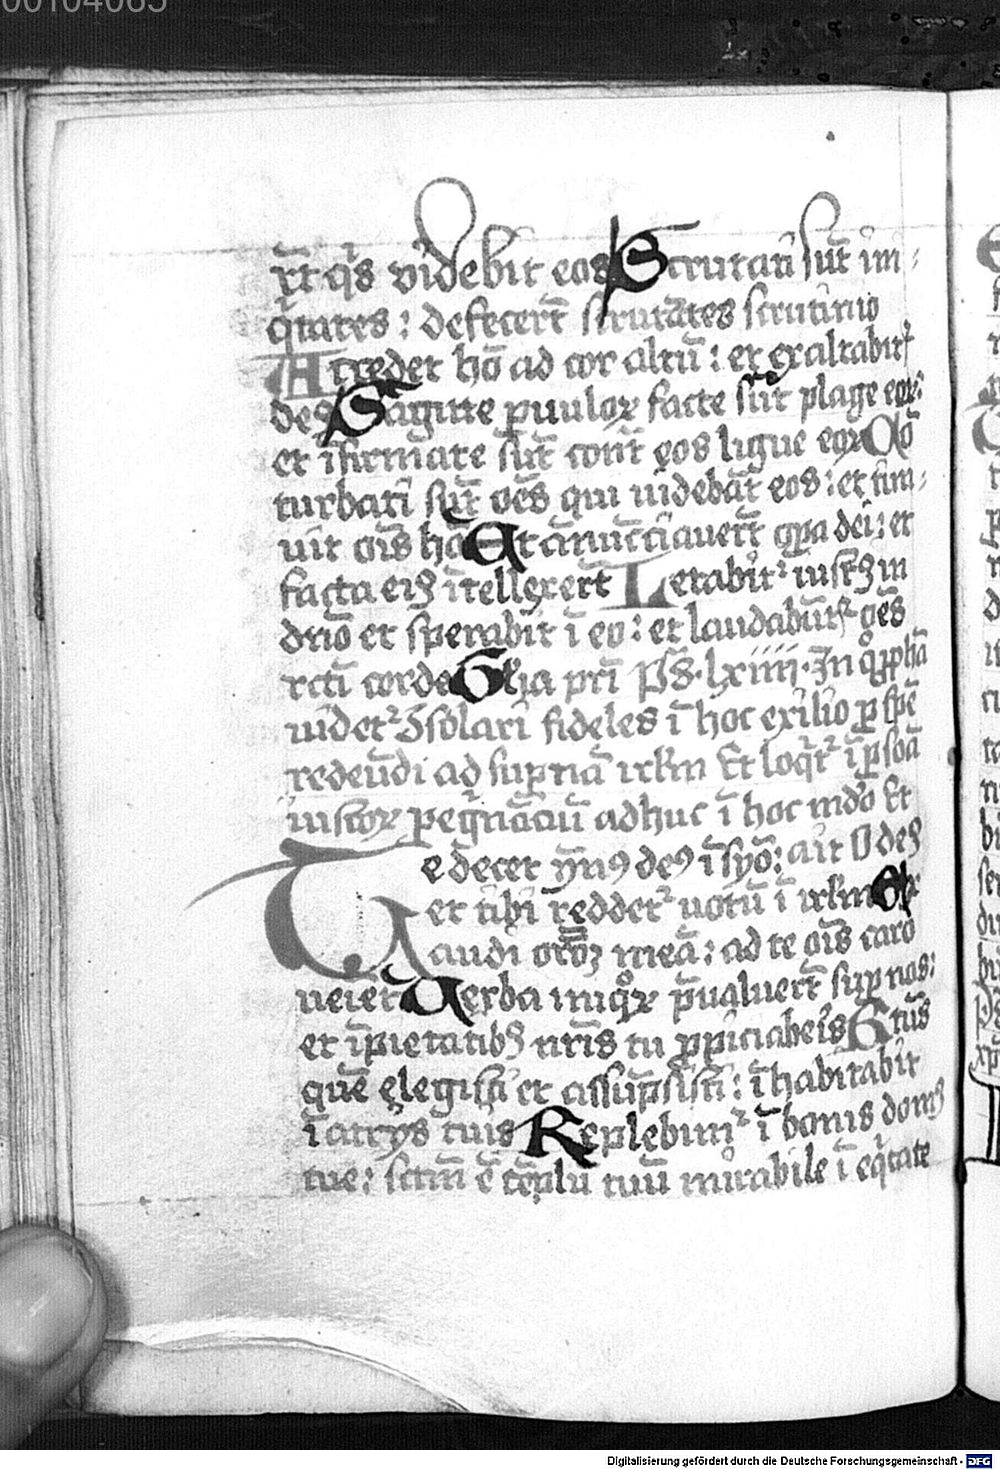 00104085
rūt q̄s videbit eos Scrutati sūt ini-
q̄tates : defecerūt scrutātes scrutinio
Accedet hō ad cor altū : et exaltabitʳ
deꝰ Sagitte pauuloꝝ facte sūt plage eoꝝ :
et īfirmate sūt contᷓ eos ligue eoꝝ Cō
turbati sūt oēs qui uidebāt eos : et tim-
uit oīs hō Et ānūtiauerūt opa dei : et
facta eiꝰ ītellexerūt Letabitʳ iustꝰ in
dn̄o et sperabit ī eo : et laudabūtʳ oēs
recti corde Glia pri ps̄ · lxiiii · In q̊ ꝓphā
uidetʳ ꝯsolari fideles ī hoc exilio ꝑ spē
redeūdi ad supnā irlm Et loq̄tʳ ī ꝑsoā
iustoꝝ peg̓nātiū adhuc ī hoc mdo Et
Te decet ymnꝰ deꝰ ī syō : ait O deꝰ
et tibi reddetʳ uotū ī irlm Ex
audi orōꝫ meā : ad te oīs caro
ueiet Uerba iniq̊ꝝ p̄ualuerūt sup nos :
et īpietatibꝫ nr̄is tu ꝓpiciabeis Btūs
quē elegisti et assūpsisti : īhabitabit
ī atrijs tuis Replebimʳ ī bonis domꝰ
tue : sctm ē tēplū tuū mirabile ī eq̄tate
Digitalisierung gefördert durch die Deutsche Forschungsgemeinschaft - DFG